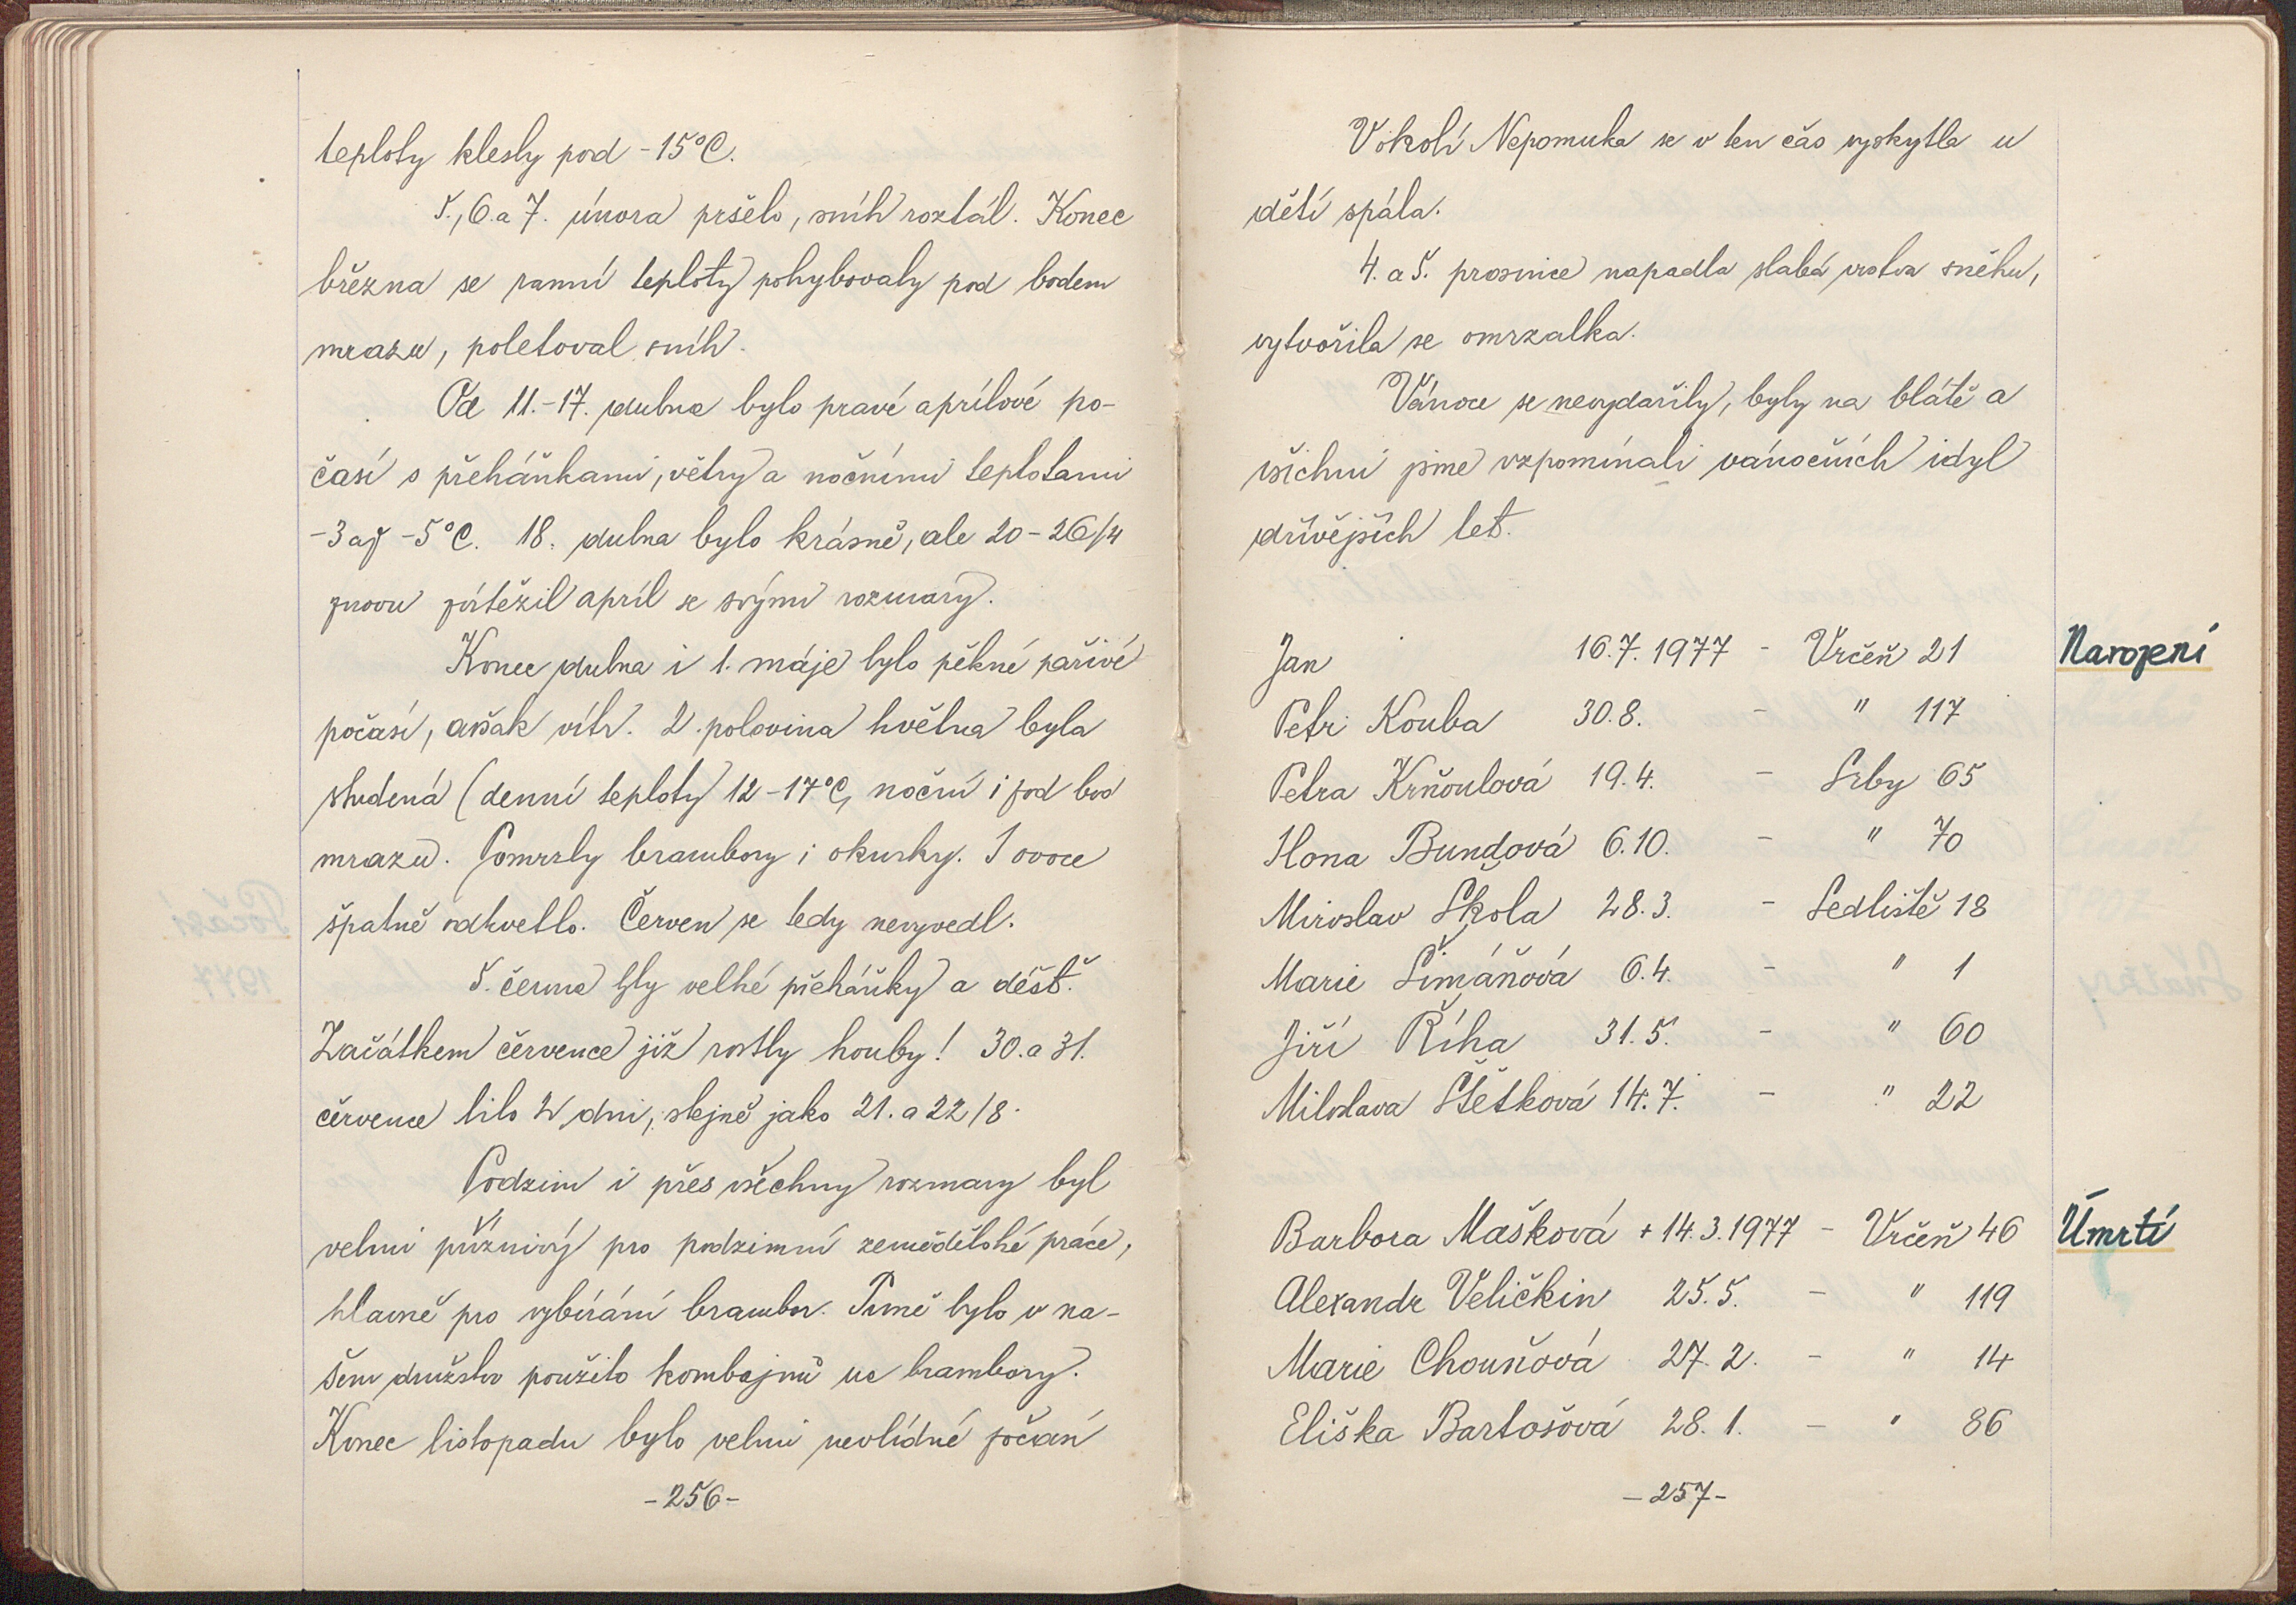 teploty klesly pod -15°C.
5., 6. a 7. února pršelo, sníh roztál. Konec
března se ranní teploty pohybovaly pod bodem
mrazu, poletoval sníh.
Od 11.-17. dubna bylo pravé aprílové po-
časí s přeháňkami, větry a nočními teplotami
-3 až -5°C. 18. dubna bylo krásně, ale 20-26/4
znovu zvítězil apríl se svými rozmary.
Konec dubna i 1. máje bylo pěkné pařivé
počasí, avšak vítr. 2. polovina května byla
studená (denní teploty 12-17°C, noční i pod bod
mrazu. Pomrzly brambory i okurky. I ovoce
špatně odkvetlo. Červen se tedy nevyvedl.
5. června byly velké přeháňky a déšť.
Začátkem července již rostly houby! 30. a 31.
července lilo 2 dni, stejně jako 21. a 22/8.
Podzim i přes všechny rozmary byl
velmi příznivý pro podzimní zemědělské práce,
hlavně pro vybírání brambor. Prvně bylo v na-
šem družstvu použito kombajnů na brambory.
Konec listopadu bylo velmi nevlídné počasí
-256-
V okolí Nepomuka se v ten čas vyskytla u
dětí spála.
4. a 5. prosince napadla slabá vrstva sněhu,
vytvořila se omrzalka.
Vánoce se nevydařily, byly na blátě a
všichni jsme vzpomínali vánočních idyl
dřívějších let.
Narození
Jan 16.7.1977 - Vrčeň 21
Petr Kouba 30.8. - " 117
Petra Krňoulová 19.4. - Srby 65
Ilona Bundová 6.10. - " 70
Miroslav Škola 28.3. - Sedliště 18
Marie Šimáňová 6.4. - " 1
Jiří Říha 31.5. - " 60
Miloslava Štětková 14.7. - " 22
Úmrtí
Barbora Mašková + 14.3.1977 - Vrčeň 46
Alexandr Veličkin 25.5. - " 119
Marie Chouňová 27.2. - " 14
Eliška Bartošová 28.1. - " 86
-257-